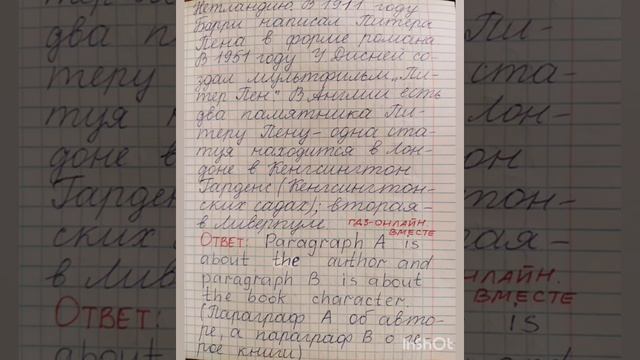 Нетландию. В 1911 году
Барри написал Питера
Пена в форме романа.
В 1951 году У. Дисней со-
здал мультфильм „Пи-
тер Пен." В Англии есть
два памятника Пи-
теру Пену - одна ста-
туя находится в Лон-
доне в Кенгсингтон
Гарденс (Кенгсингтон-
ских садах); вторая-
в Ливерпуле.
ГДЗ-ОНЛАЙН
ВМЕСТЕ
ОТВЕТ: Paragraph A is
about the author and
paragraph B is about
the book character.
(Параграф А об авто-
ре, а параграф В о ге-
рое книги)